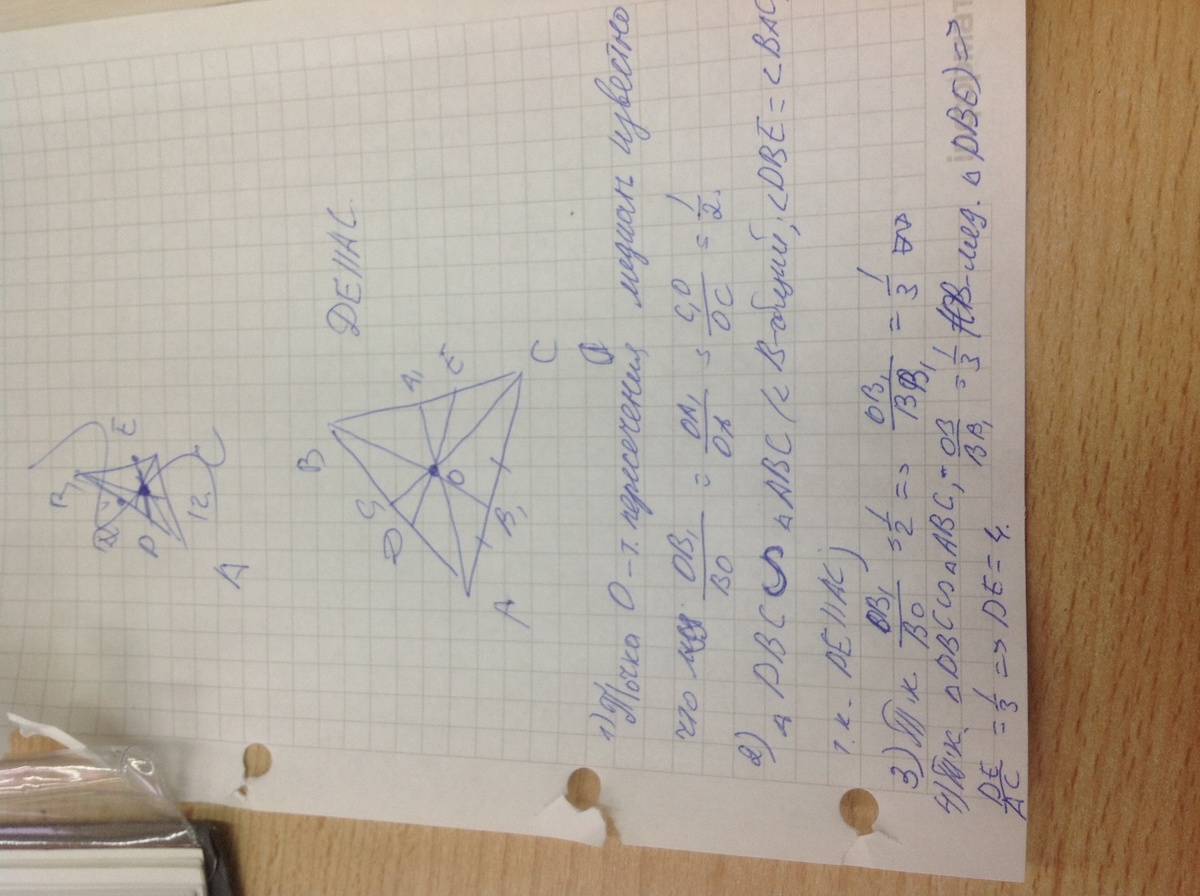 B
D
E
12
A
DE||AC
B
C₁
D
A₁
E
O
A
B₁
C
1) Точка O - т. пересечения медиан известно
что OB₁/BO = OA₁/OA = C₁O/OC = 1/2.
2) △ DBC ∽ △ABC (∠B-общий, ∠DBE = ∠BAC,
т.к. DE||AC)
3) Т.к. OB₁/BO = 1/2 => OB₁/BB₁ = 1/3 =>
4) Т.к. △DBC∽△ABC, OB/BB₁ = 1/3 (OB-мед. △DBE) =>
DE/AC = 1/3 => DE = 4.